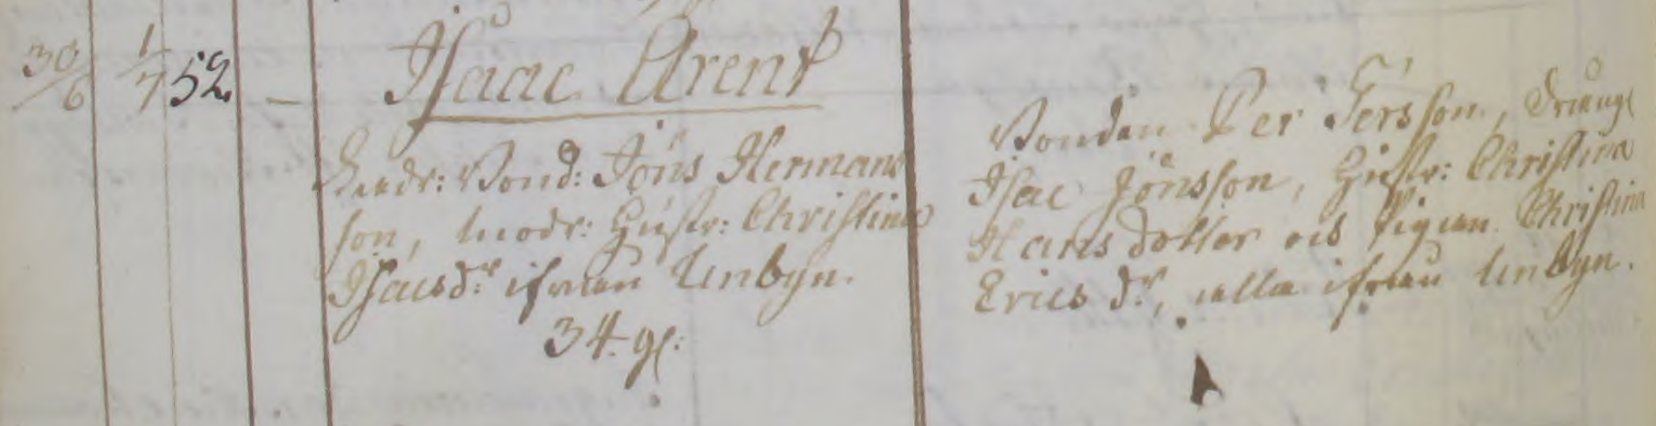 30/6 1/7 52. — Isaac Arent
Fadr: Bond: Jöns Hermans
son, modr: Hustr: Christina
Isacsdr ifrån Unbyn.
34. gl:
Bonden Per Persson, Dräng
Isac Jönsson, Hustr: Christina
Hans dotter och Pigan Christina
Erics dr, alla ifrån Unbyn.